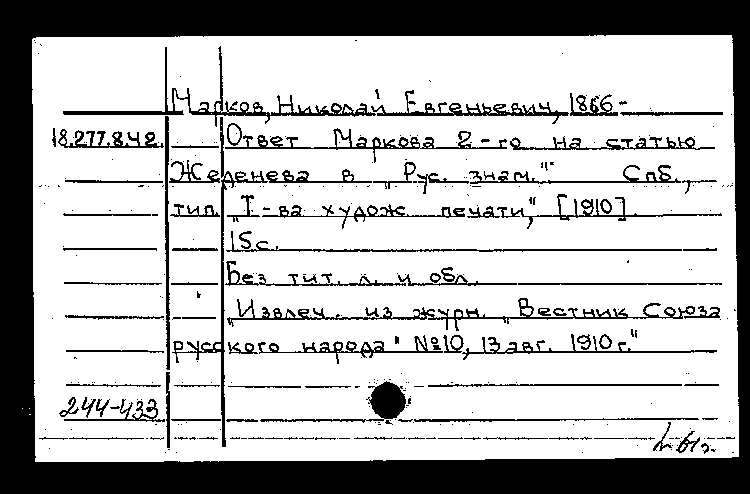 Марков, Николай Евгеньевич, 1866-
18.277.8.42. Ответ Маркова 2-го на статью
Жеденева в „Рус. знам.". Спб.,
тип. „Т-ва худож. печати", [1910].
15с.
Без тит. л. и обл.
„Извлеч. из журн. „Вестник Союза
русского народа" №10, 13 авг. 1910г."
244-433
61г.